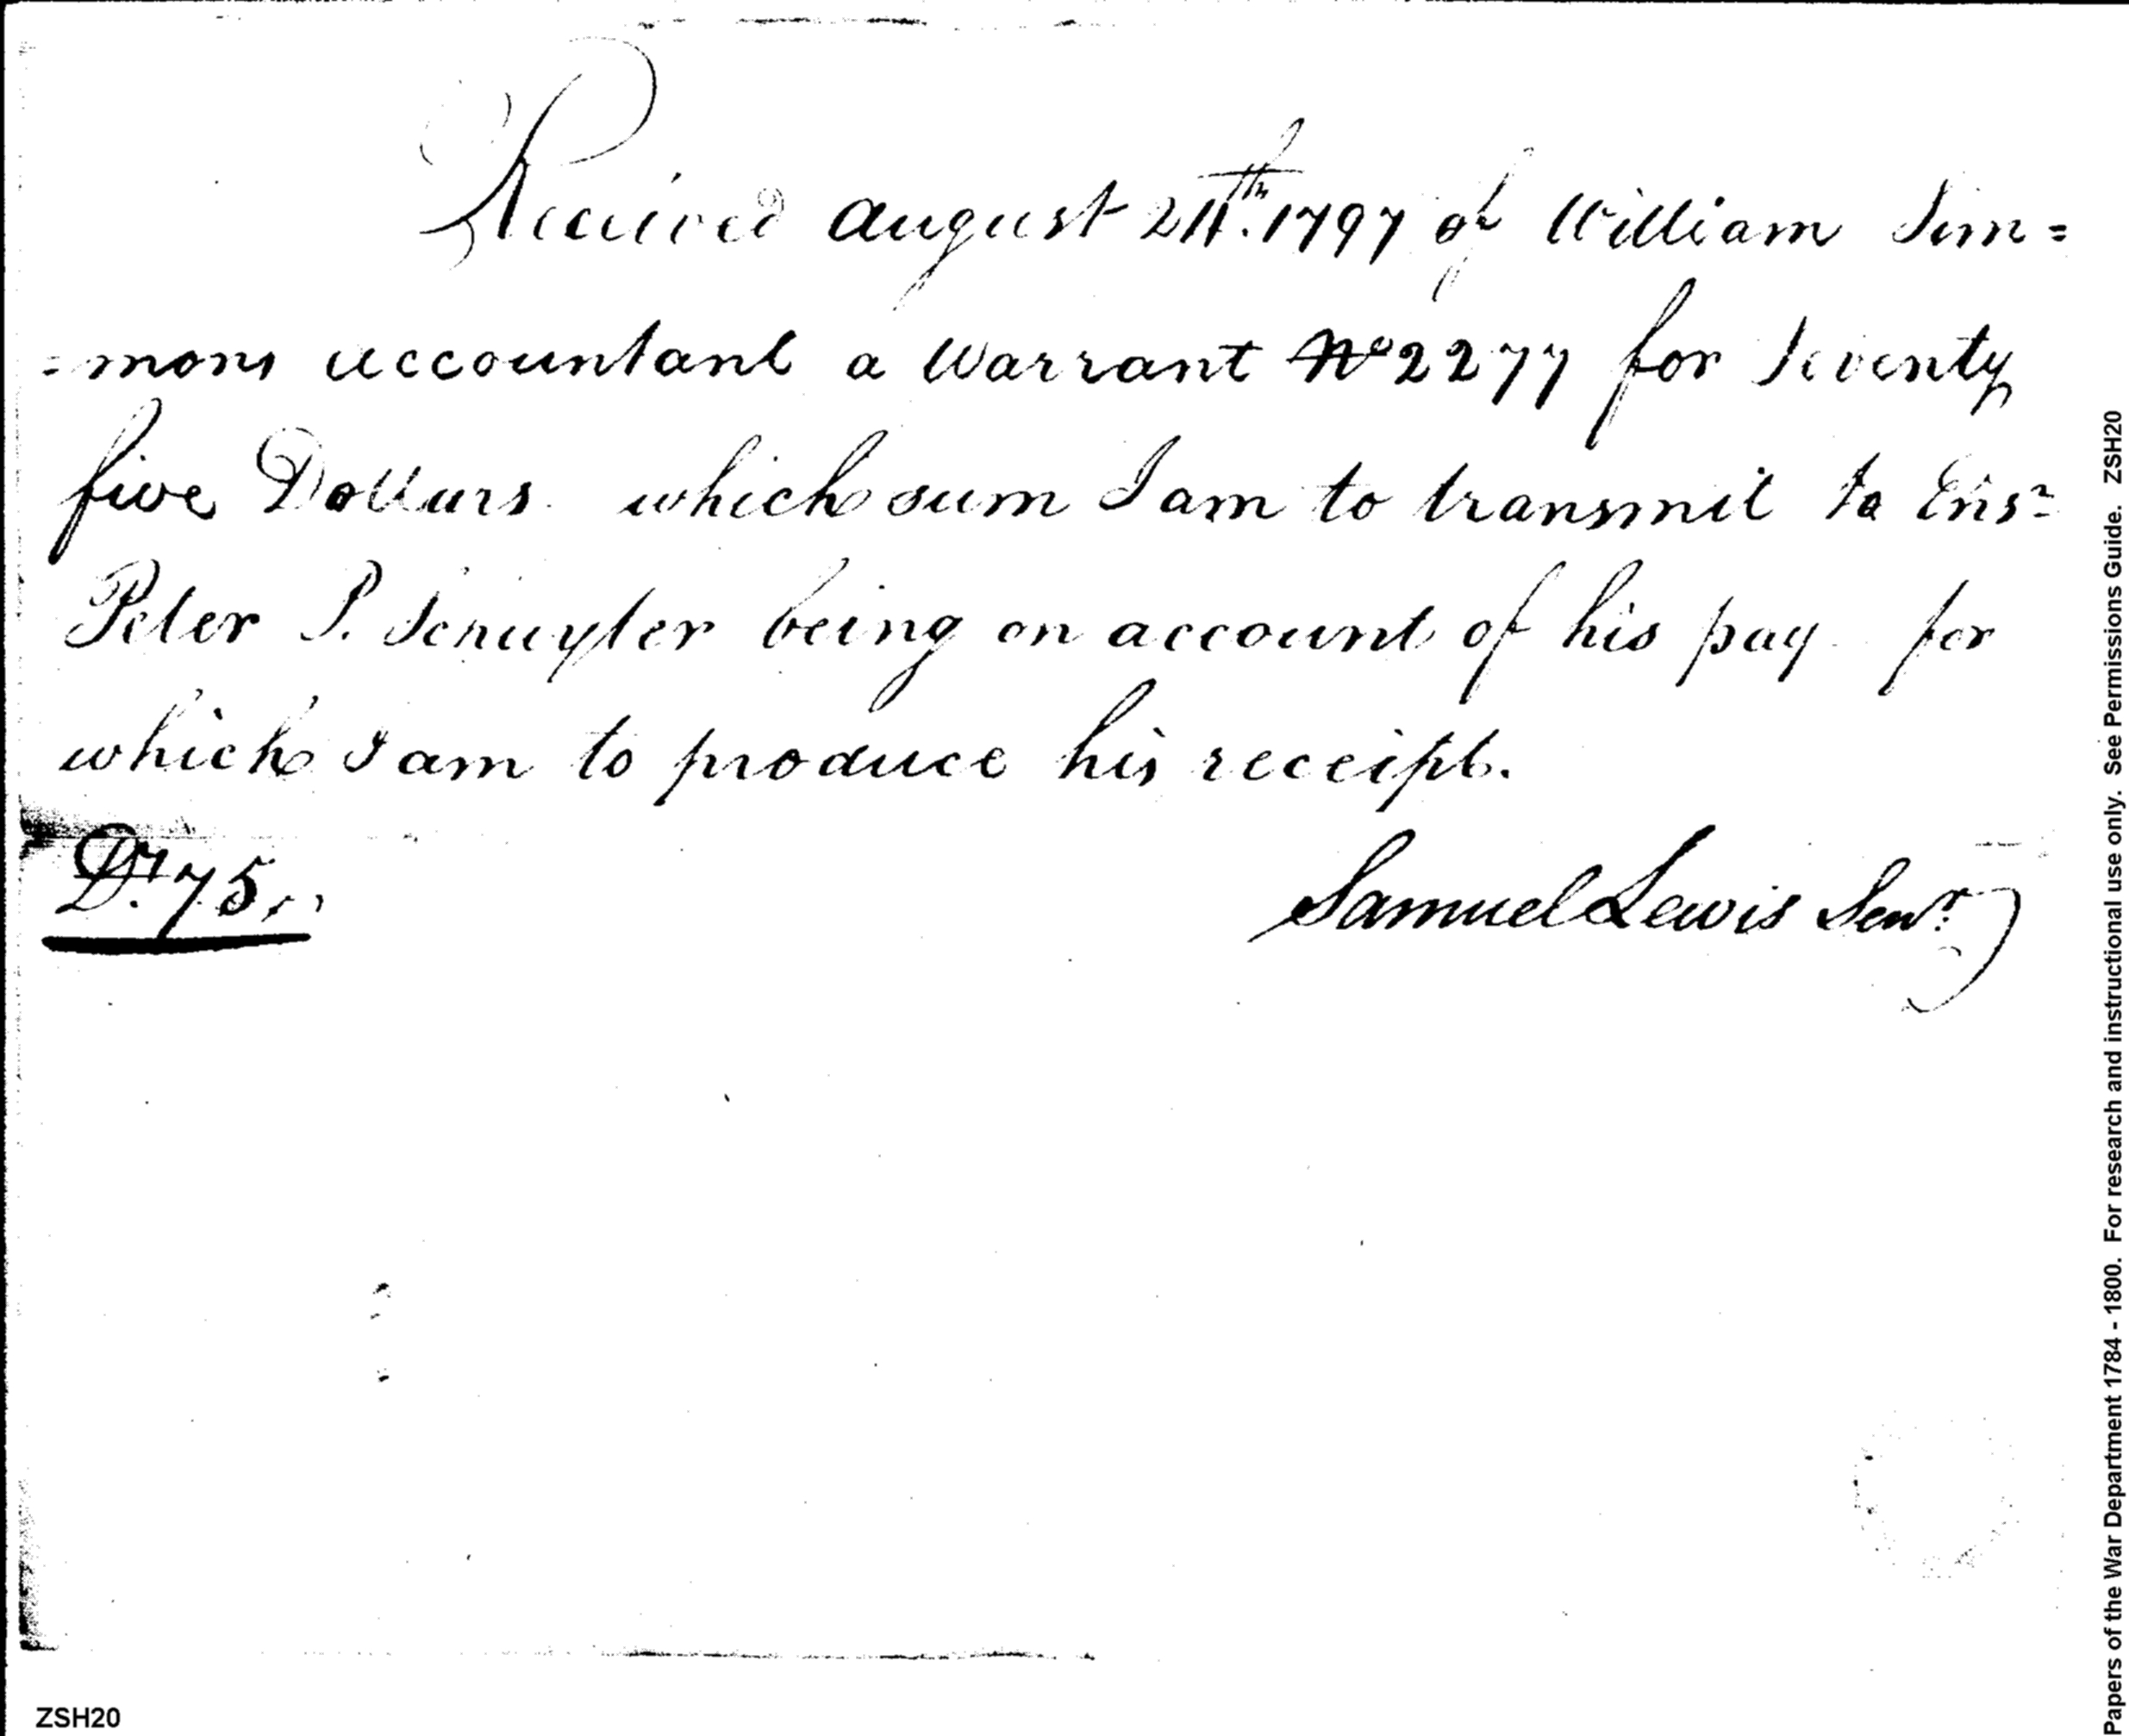 Received August 24th. 1797 of William Sim=
=mons accountant a Warrant No 2277 for Seventy
five Dollars which sum I am to transmit to Ensn
Peter P. Schuyler being on account of his pay for
which I am to produce his receipt.
Ds. 75,,
Samuel Lewis Senr.
Papers of the War Department 1784 - 1800. For research and instructional use only. See Permissions Guide. ZSH20
ZSH20